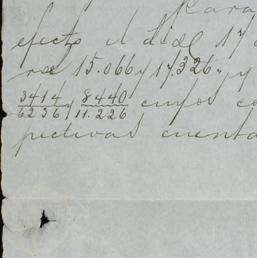 Para
efecto el dia 17
15.066 y 17.326 y
3414/6236 y 8440/11.226 cuyos
pectivas cuenta